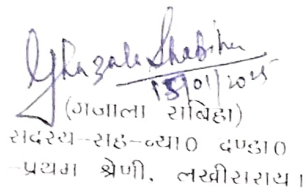 Ghazala Shabiha
18/01/2025
(गजाला साबिहा)
सदस्य-सह-न्या0 दण्डा0
-प्रथम श्रेणी, लखीसराय।